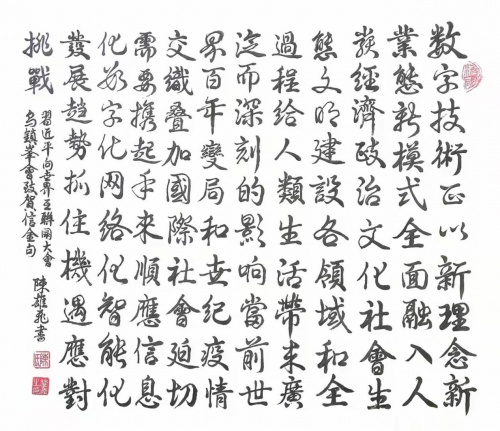 数字技術正以新理念新
業態新模式全面融入人
類經濟政治文化社會生
態文明建設各領域和全
過程給人類生活帶来廣
泛而深刻的影响當前世
界百年變局和世纪疫情
交織叠加國際社會迫切
需要携起手来順應信息
化数字化网络化智能化
發展趨势抓住機遇應對
挑戰
習近平向世界互聯网大會
乌鎮峯會致賀信金句 陳雄飛書